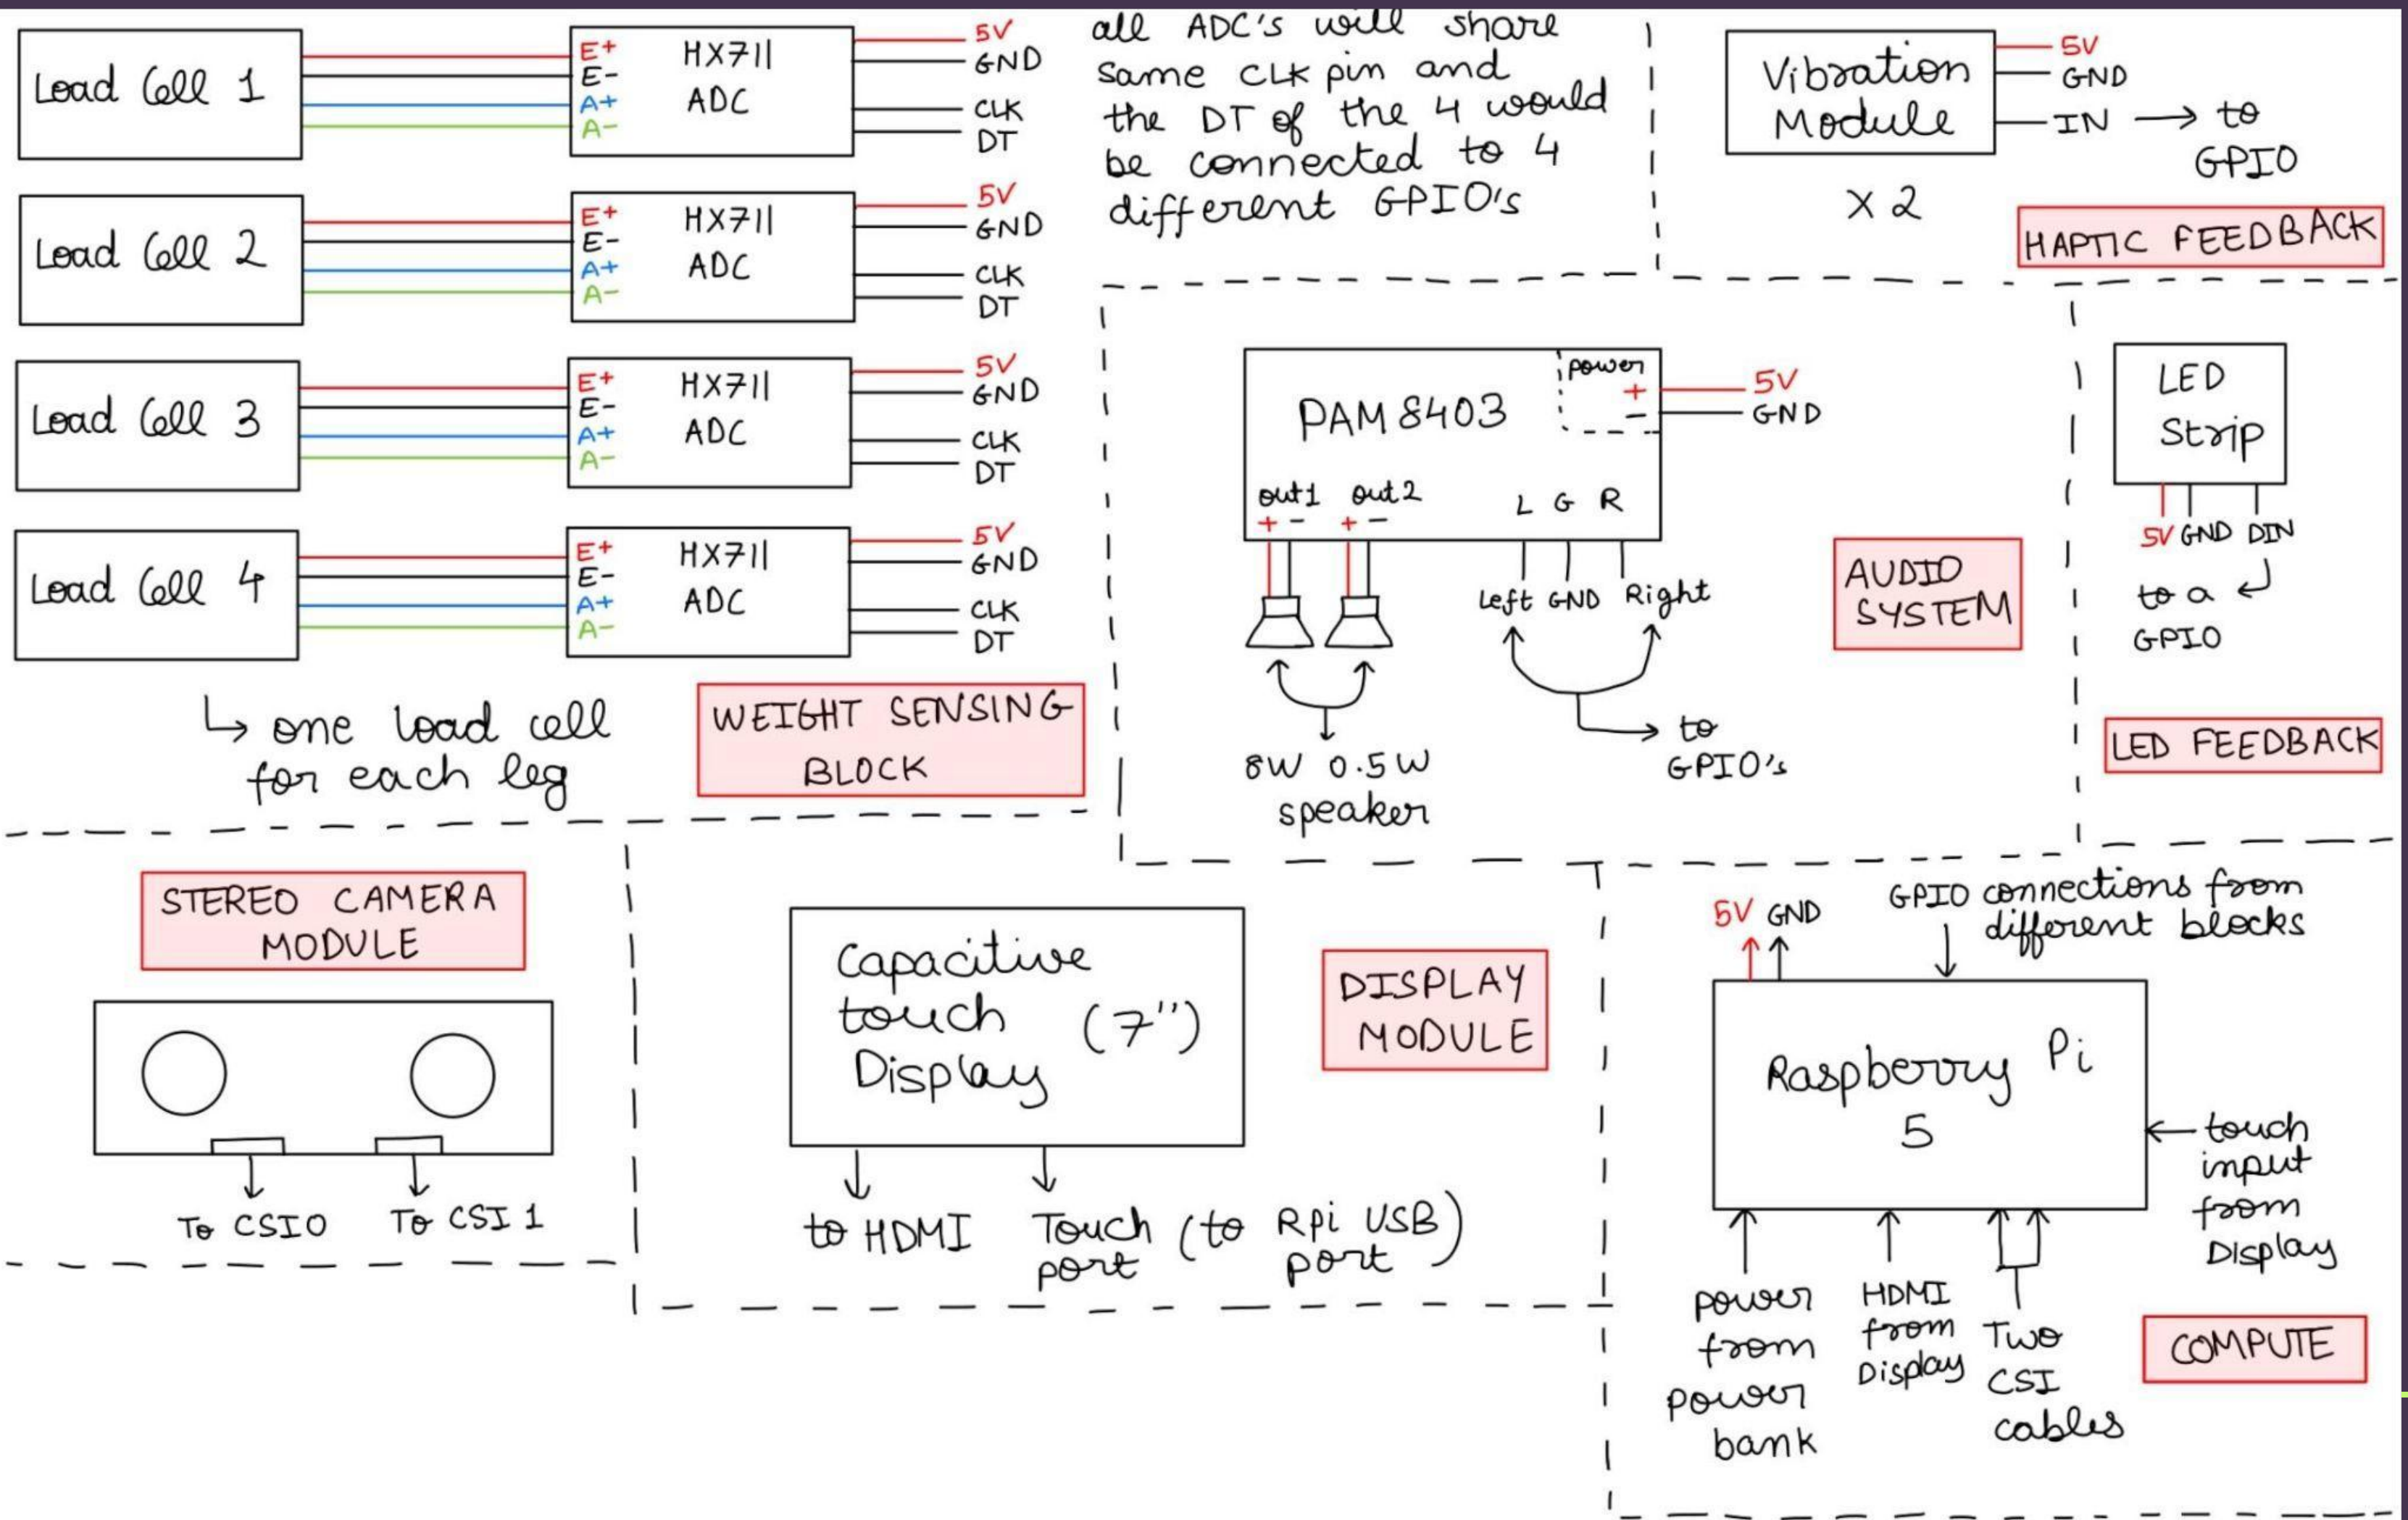 Load Cell 1
E+
E-
A+
A-
HX711
ADC
5V
GND
CLK
DT
Load Cell 2
E+
E-
A+
A-
HX711
ADC
5V
GND
CLK
DT
Load Cell 3
E+
E-
A+
A-
HX711
ADC
5V
GND
CLK
DT
Load Cell 4
E+
E-
A+
A-
HX711
ADC
5V
GND
CLK
DT
one load cell
for each leg
WEIGHT SENSING
BLOCK
all ADC's will share
same CLK pin and
the DT of the 4 would
be connected to 4
different GPIO's
Vibration
Module
5V
GND
IN → to
GPIO
X 2
HAPTIC FEEDBACK
PAM 8403
power
+
-
5V
GND
out1 out2
+ - + -
L G R
Left GND Right
to
GPIO's
8W 0.5W
speaker
AUDIO
SYSTEM
LED
Strip
5V GND DIN
to a
GPIO
LED FEEDBACK
STEREO CAMERA
MODULE
To CSI0 To CSI 1
Capacitive
touch (7")
Display
to HDMI Touch (to Rpi USB)
port port
DISPLAY
MODULE
5V GND
GPIO connections from
different blocks
Raspberry Pi
5
touch
input
from
Display
power
from
power
bank
HDMI
from
Display
Two
CSI
cables
COMPUTE